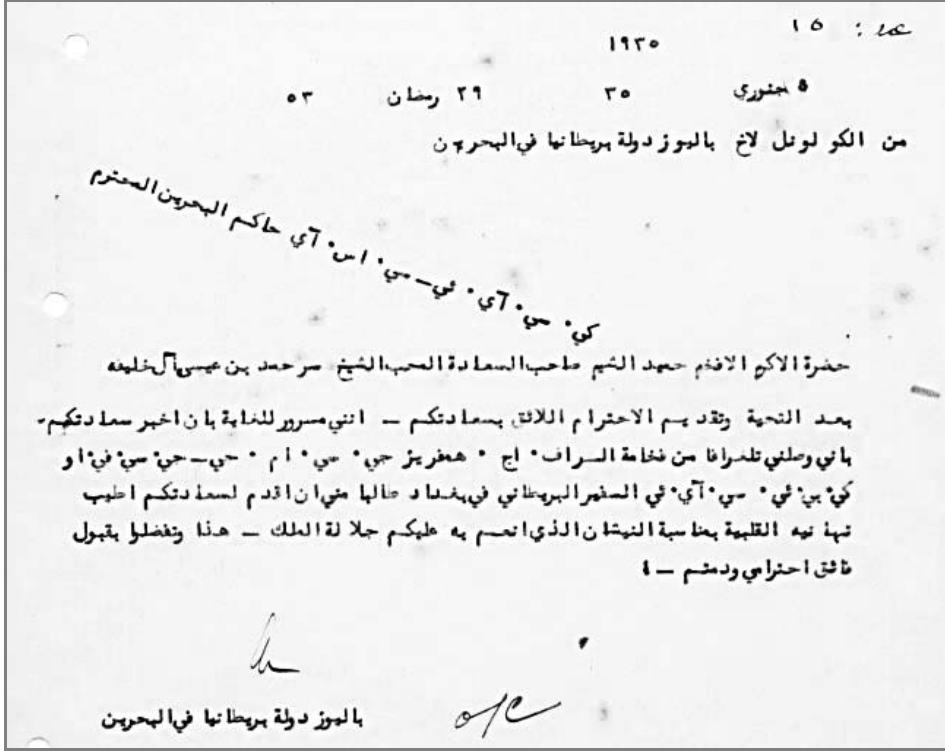 عدد : ١٥
١٩٣٥
٥ جنوري ٣٥ ٢٩ رمضان ٥٣
من الكولونل لاخ باليوز دولة بريطانيا في البحرين
كي٠ سي٠ آي٠ ئي — سي٠ اس٠ آي حاكم البحرين المحترم
حضرة الاكرم الافخم حميد الشيم صاحب السعادة المحب الشيخ سر حمد بن عيسى آل خليفه
بعد التحية وتقديم الاحترام اللائق بسعادتكم — انني مسرور للغاية بان اخبر سعادتكم
باني وصلني تلغرافا من فخامة السراف٠ اج٠ همفريز جي٠ سي٠ ام٠ جي — جي٠ سي٠ في٠ او
كي٠ بي٠ ئي٠ سي٠ آي٠ ئي السفير البريطاني في بغداد طالبا مني ان اقدم لسعادتكم اطيب
تهانيه القلبية بمناسبة النيشان الذي انعم به عليكم جلالة الملك — هذا وتفضلوا بقبول
فائق احترامي ودمتم —
باليوز دولة بريطانيا في البحرين